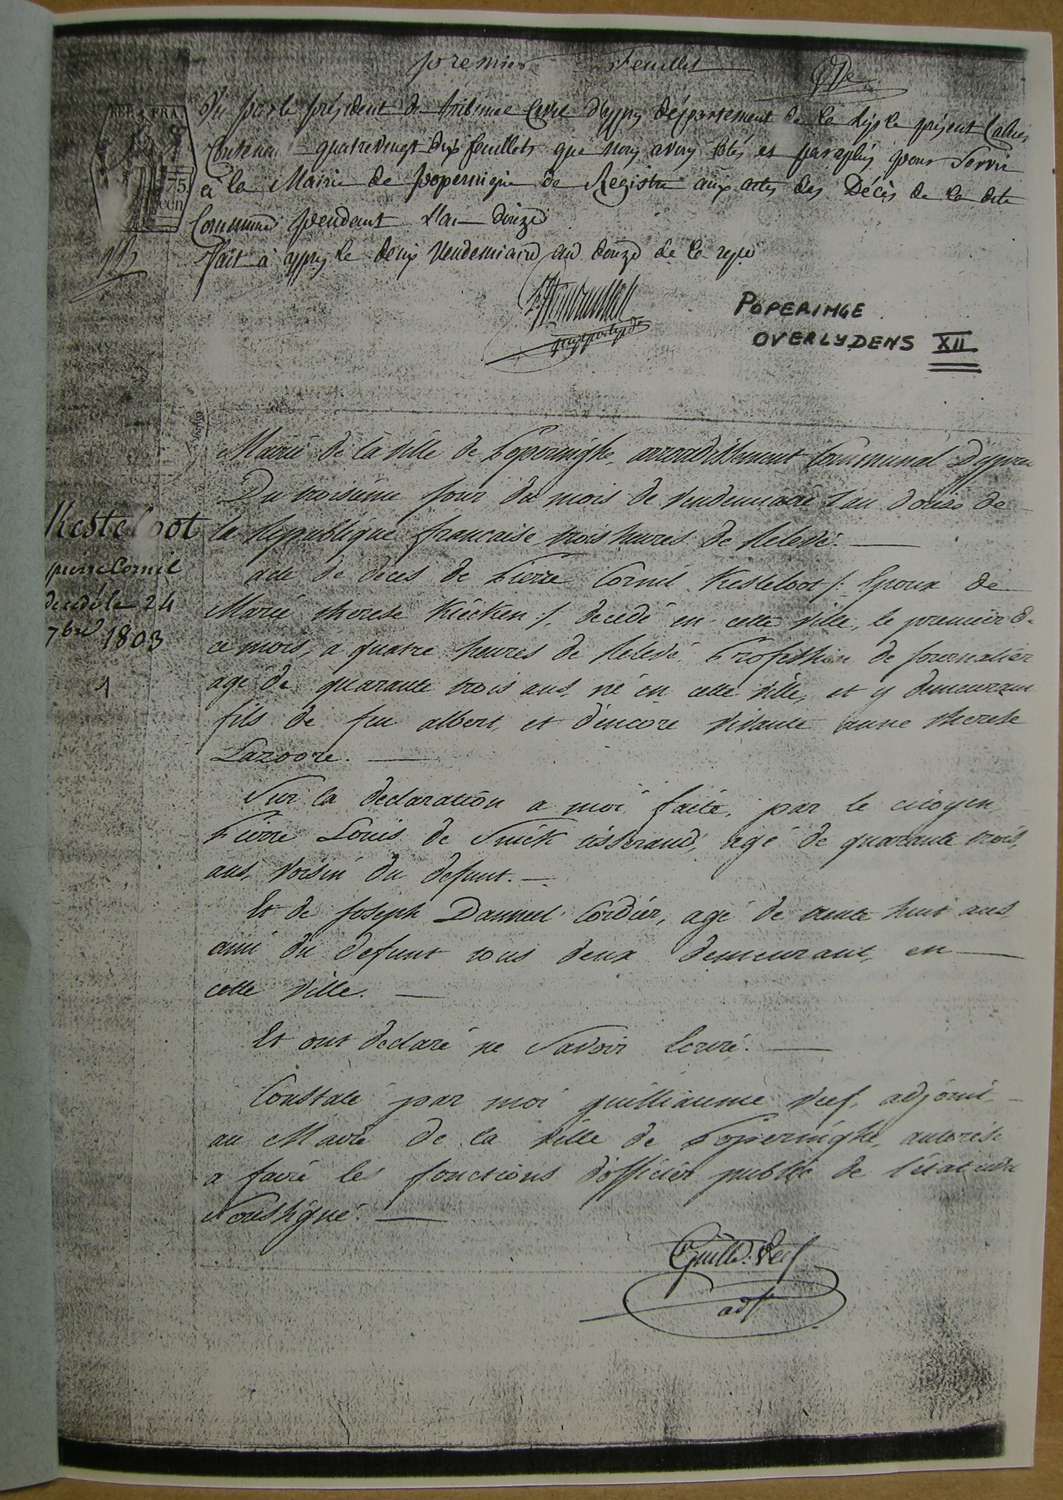 premier Feuillet
Vu par le président du tribunal Civil d'ypres département de la Lys le présent Cahier
Contenant quatrevingt dix feuillets que nous avons cotés et paraphés pour Servir
à la Mairie de poperingue de Registre aux actes des Décès de la dite
Commune pendant L'an douze
fait à ypres le deux Vendemiaire an douze de la repe
REP. FRA.
75
CEN
POPERINGE
OVERLYDENS XII
Mairie de la ville de Poperinghe, arrondissement Communal D'ypres
Du troisieme jour du mois de vendemiaire l'an douse de
la Republique francaise trois heures de Relevé.
Kesteloot
pierre Cornil
decédé le 24
7bre 1803
1
acte de décès de Pierre Cornil Kesteloot /: Epoux de
Marie therese Kieken :/ decedé en cette ville, le premier de
ce mois, a quatre heures de Relevé Profession de Journalier
agé de quarante trois ans, né en cette ville, et y demeurant
fils de feu albert, et d'encore vivante anne therese
Lazoore.
Sur la declaration a moi faite, par le citoyen
Pierre Louis de Snick tisserand, agé de quarante trois
ans, voisin du defunt.
Et de Joseph Danneel Cordier, agé de trente huit ans
ami du defunt tous deux demeurant, en
cette ville.
Et ont declaré ne Savoir Ecrire.
Constaté par moi guilliaume Verf, adjoint
au Maire de la ville de Poperinghe, autorisé
a faire les fonctions d'officier public de l'etat civil
et soussigné.
Guill. Verf
adjt